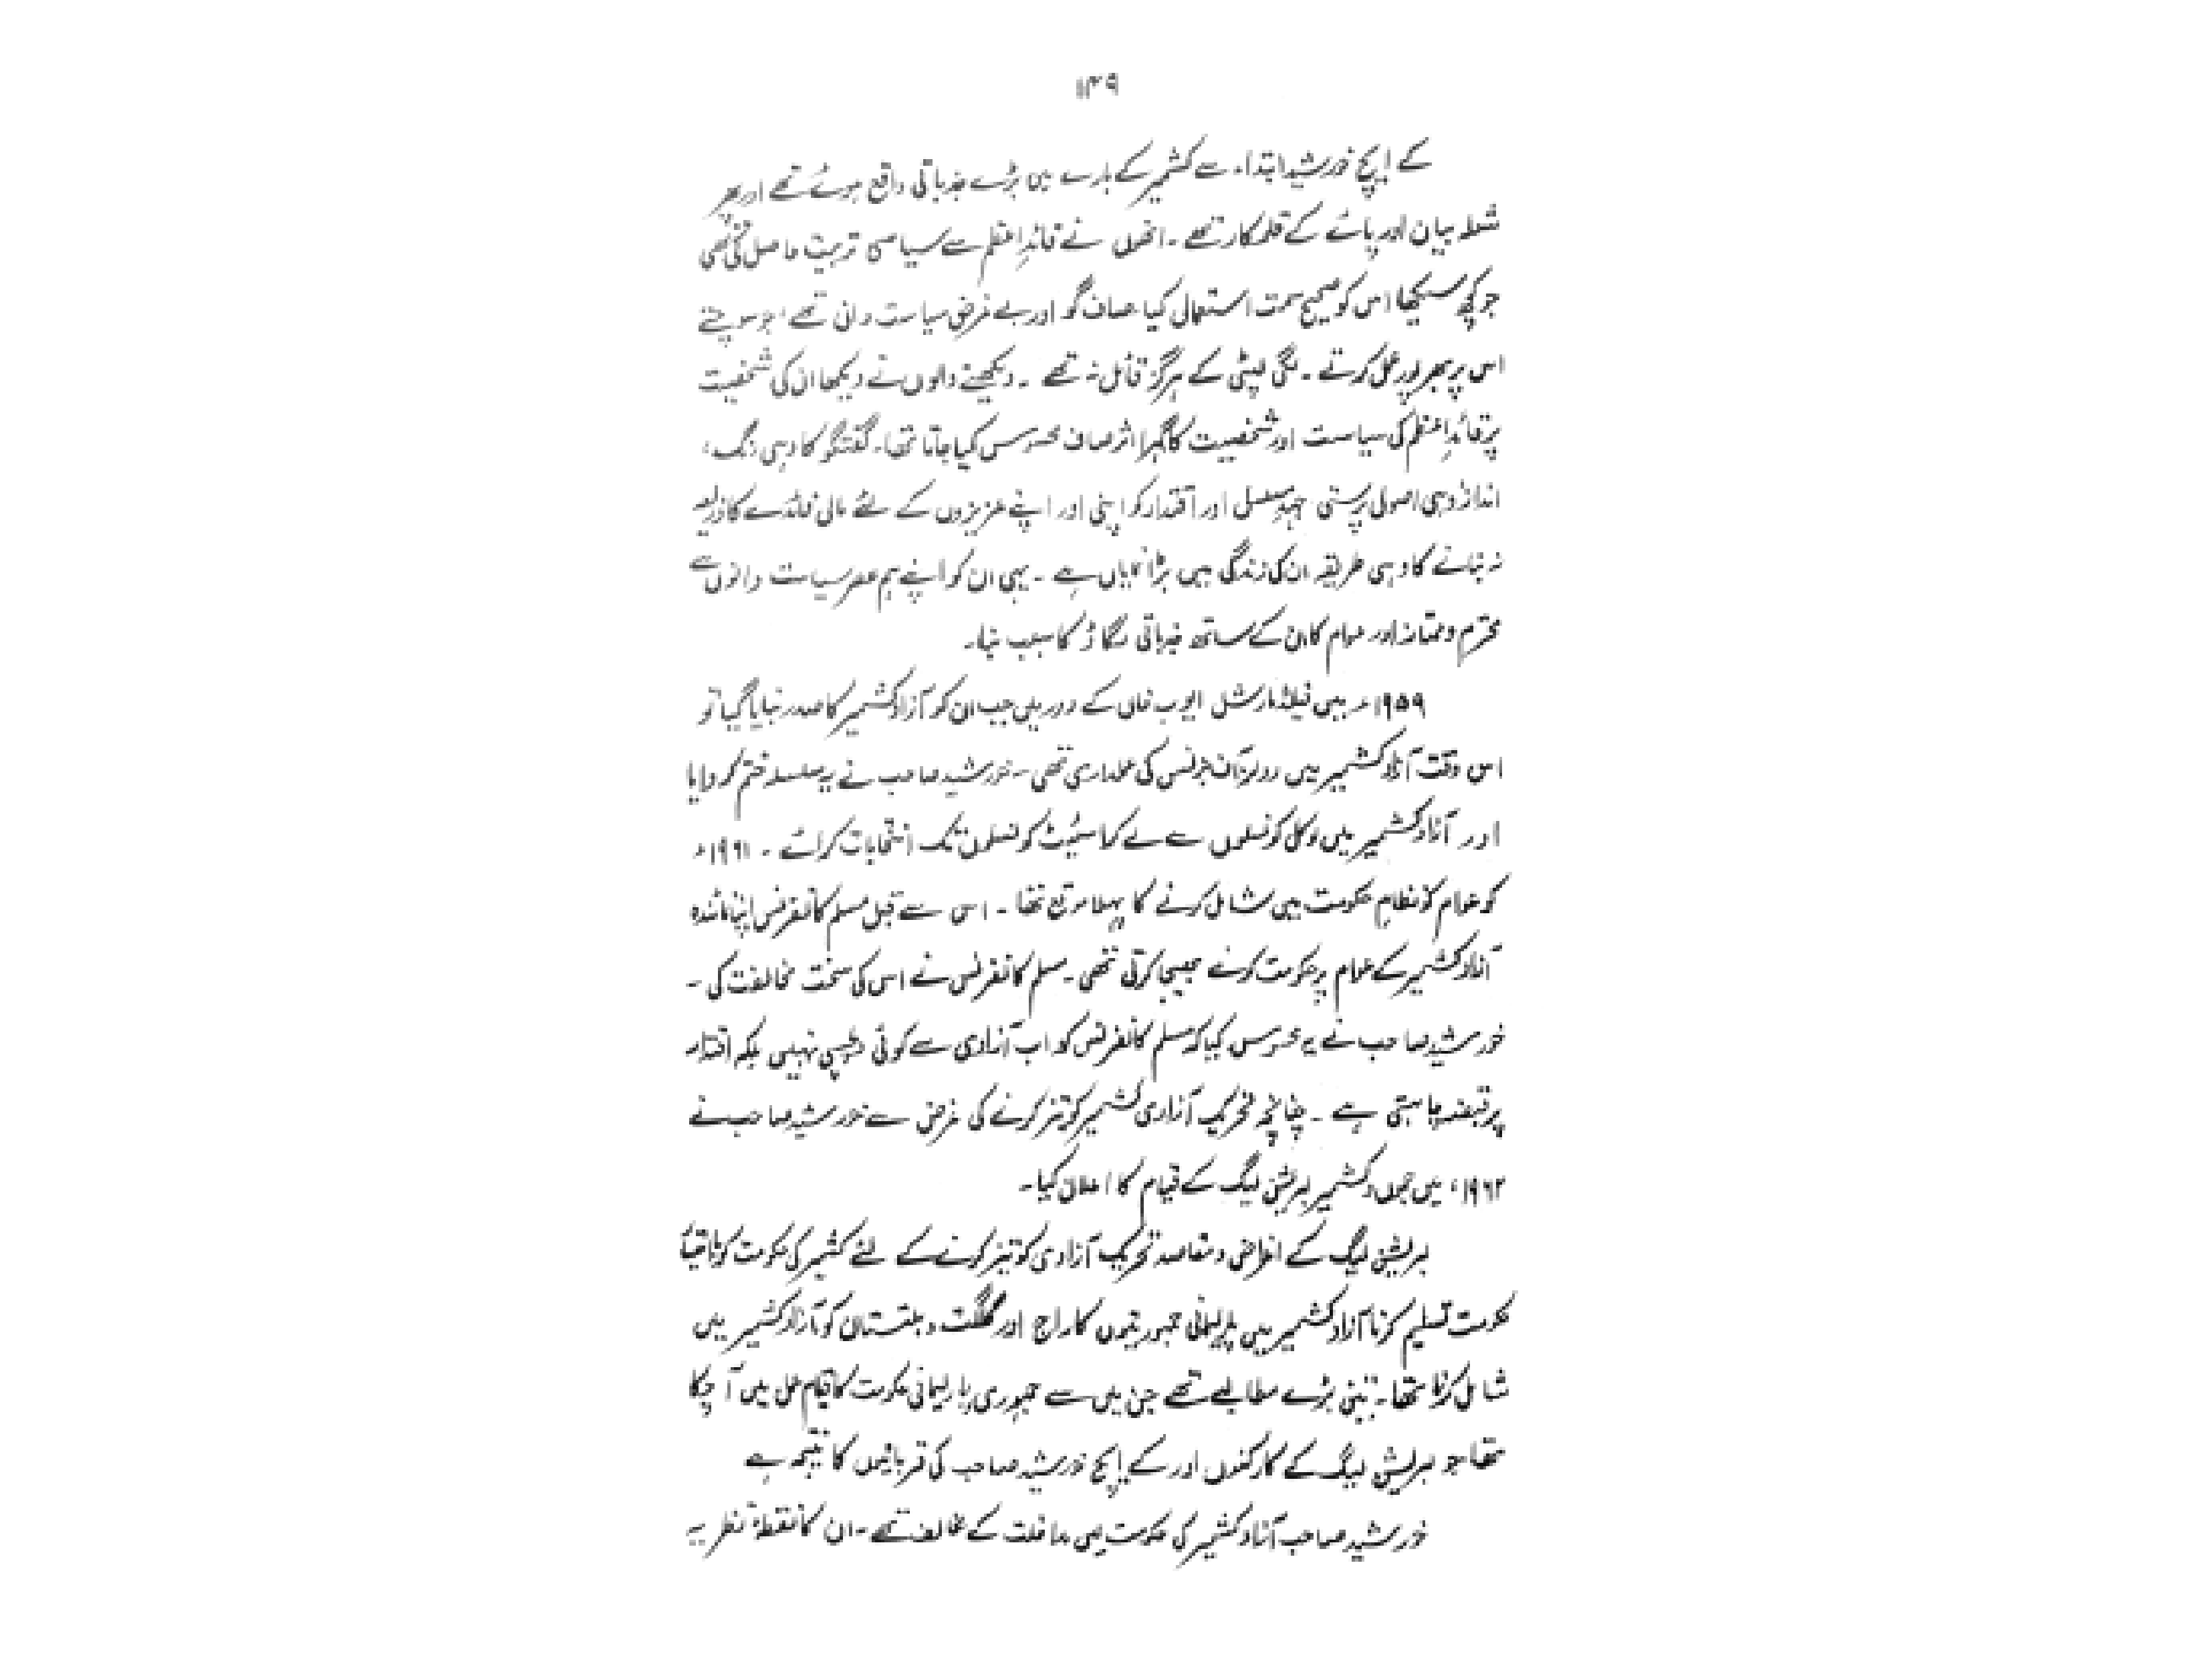 ۱۴۹
کے ایچ خورشید ابتداء سے کشمیر کے بارے میں بڑے جذباتی واقع ہوئے تھے اور پھر
شعلہ بیان اور پائے کے قلمکار تھے ۔ انھوں نے قائدِ اعظم سے سیاسی تربیت حاصل کی تھی
جو کچھ سیکھا اس کو صحیح سمت استعمال کیا صاف گو اور بے غرض سیاست دان تھے، جو سوچتے
اس پر بھرپور عمل کرتے ۔ لگی لپٹی کے ہرگز قائل نہ تھے ۔ دیکھنے والوں نے دیکھا ان کی شخصیت
پر قائدِ اعظم کی سیاست اور شخصیت کا گہرا اثر صاف محسوس کیا جاتا تھا۔ گفتگو کا وہی رنگ،
انداز وہی اصول پرستی جہدِ مسلسل اور اقتدار کو اپنی اور اپنے عزیزوں کے لئے مالی فائدے کا ذریعہ
نہ بنانے کا وہی طریقہ ان کی زندگی میں بڑا نمایاں ہے ۔ یہی ان کو اپنے ہم عصر سیاست دانوں سے
محترم و ممتاز اور عوام کا ان کے ساتھ جذباتی لگاؤ کا سبب بنا۔
۱۹۵۹ء میں فیلڈ مارشل ایوب خاں کے دور میں جب ان کو آزاد کشمیر کا صدر بنایا گیا تو
اس وقت آزاد کشمیر میں رولز آف بزنس کی عملداری تھی ۔ خورشید صاحب نے یہ سلسلہ ختم کروایا
اور آزاد کشمیر میں لوکل کونسلوں سے لے کر اسٹیٹ کونسلوں تک انتخابات کرائے ۔ ۱۹۶۱ء
کو عوام کو نظامِ حکومت میں شامل کرنے کا پہلا موقع تھا ۔ اس سے قبل مسلم کانفرنس اپنا نمائندہ
آزاد کشمیر کے عوام پر حکومت کرنے بھیجا کرتی تھی ۔ مسلم کانفرنس نے اس کی سخت مخالفت کی ۔
خورشید صاحب نے یہ محسوس کیا کہ مسلم کانفرنس کو اب آزادی سے کوئی دلچسپی نہیں بلکہ اقتدار
پر قبضہ چاہتی ہے ۔ چنانچہ تحریکِ آزادی کشمیر کو تیز کرنے کی غرض سے خورشید صاحب نے
۱۹۶۲ء میں جموں و کشمیر لبریشن لیگ کے قیام کا اعلان کیا۔
لبریشن لیگ کے اغراض و مقاصد تحریکِ آزادی کو تیز کرنے کے لئے کشمیر کی حکومت کو
حکومت تسلیم کرنا آزاد کشمیر میں پارلیمانی جمہوریتوں کا راج اور گلگت و بلتستان کو آزاد کشمیر میں
شامل کرنا تھا۔ تین بڑے مطالبے تھے جن میں سے جمہوری پارلیمانی حکومت کا قیام عمل میں آ چکا
تھا جو لبریشن لیگ کے کارکنوں اور کے ایچ خورشید صاحب کی قربانیوں کا نتیجہ ہے
خورشید صاحب آزاد کشمیر کی حکومت میں مداخلت کے مخالف تھے ۔ ان کا نقطۂ نظر یہ